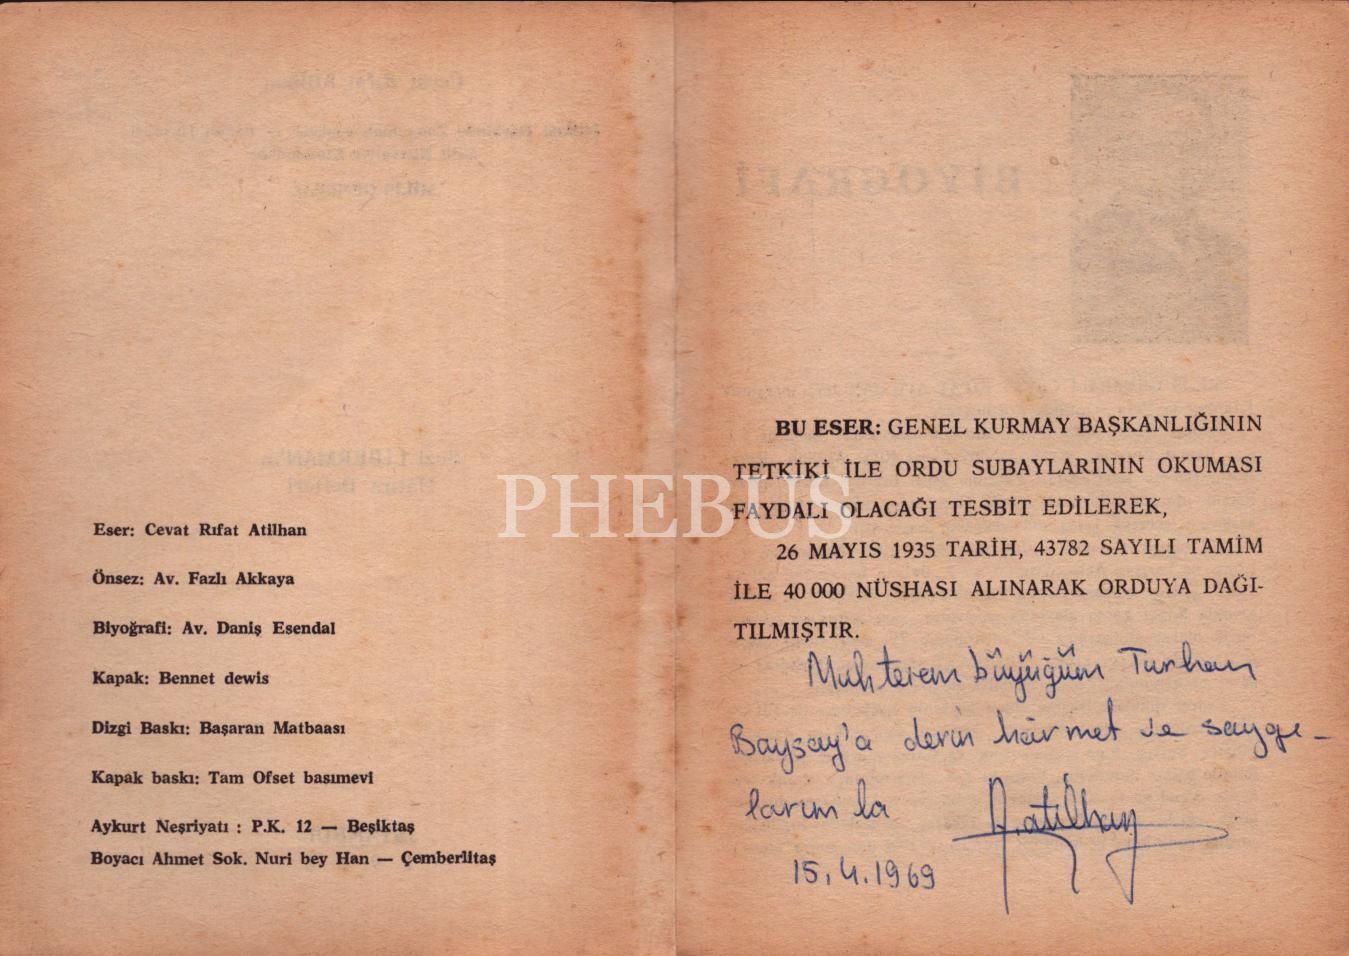 Eser: Cevat Rıfat Atilhan
Önsez: Av. Fazlı Akkaya
Biyoğrafi: Av. Daniş Esendal
Kapak: Bennet dewis
Dizgi Baskı: Başaran Matbaası
Kapak baskı: Tam Ofset basımevi
Aykurt Neşriyatı : P.K. 12 — Beşiktaş
Boyacı Ahmet Sok. Nuri bey Han — Çemberlitaş
PHEBUS
BİYOGRAFİ
BU ESER: GENEL KURMAY BAŞKANLIĞININ
TETKİKİ İLE ORDU SUBAYLARININ OKUMASI
FAYDALI OLACAĞI TESBİT EDİLEREK,
26 MAYIS 1935 TARİH, 43782 SAYILI TAMİM
İLE 40 000 NÜSHASI ALINARAK ORDUYA DAĞI-
TILMIŞTIR.
Muhterem büyüğüm Turhan
Baysay'a derin hürmet ve saygı-
larımla
A.atilhan
15.4.1969